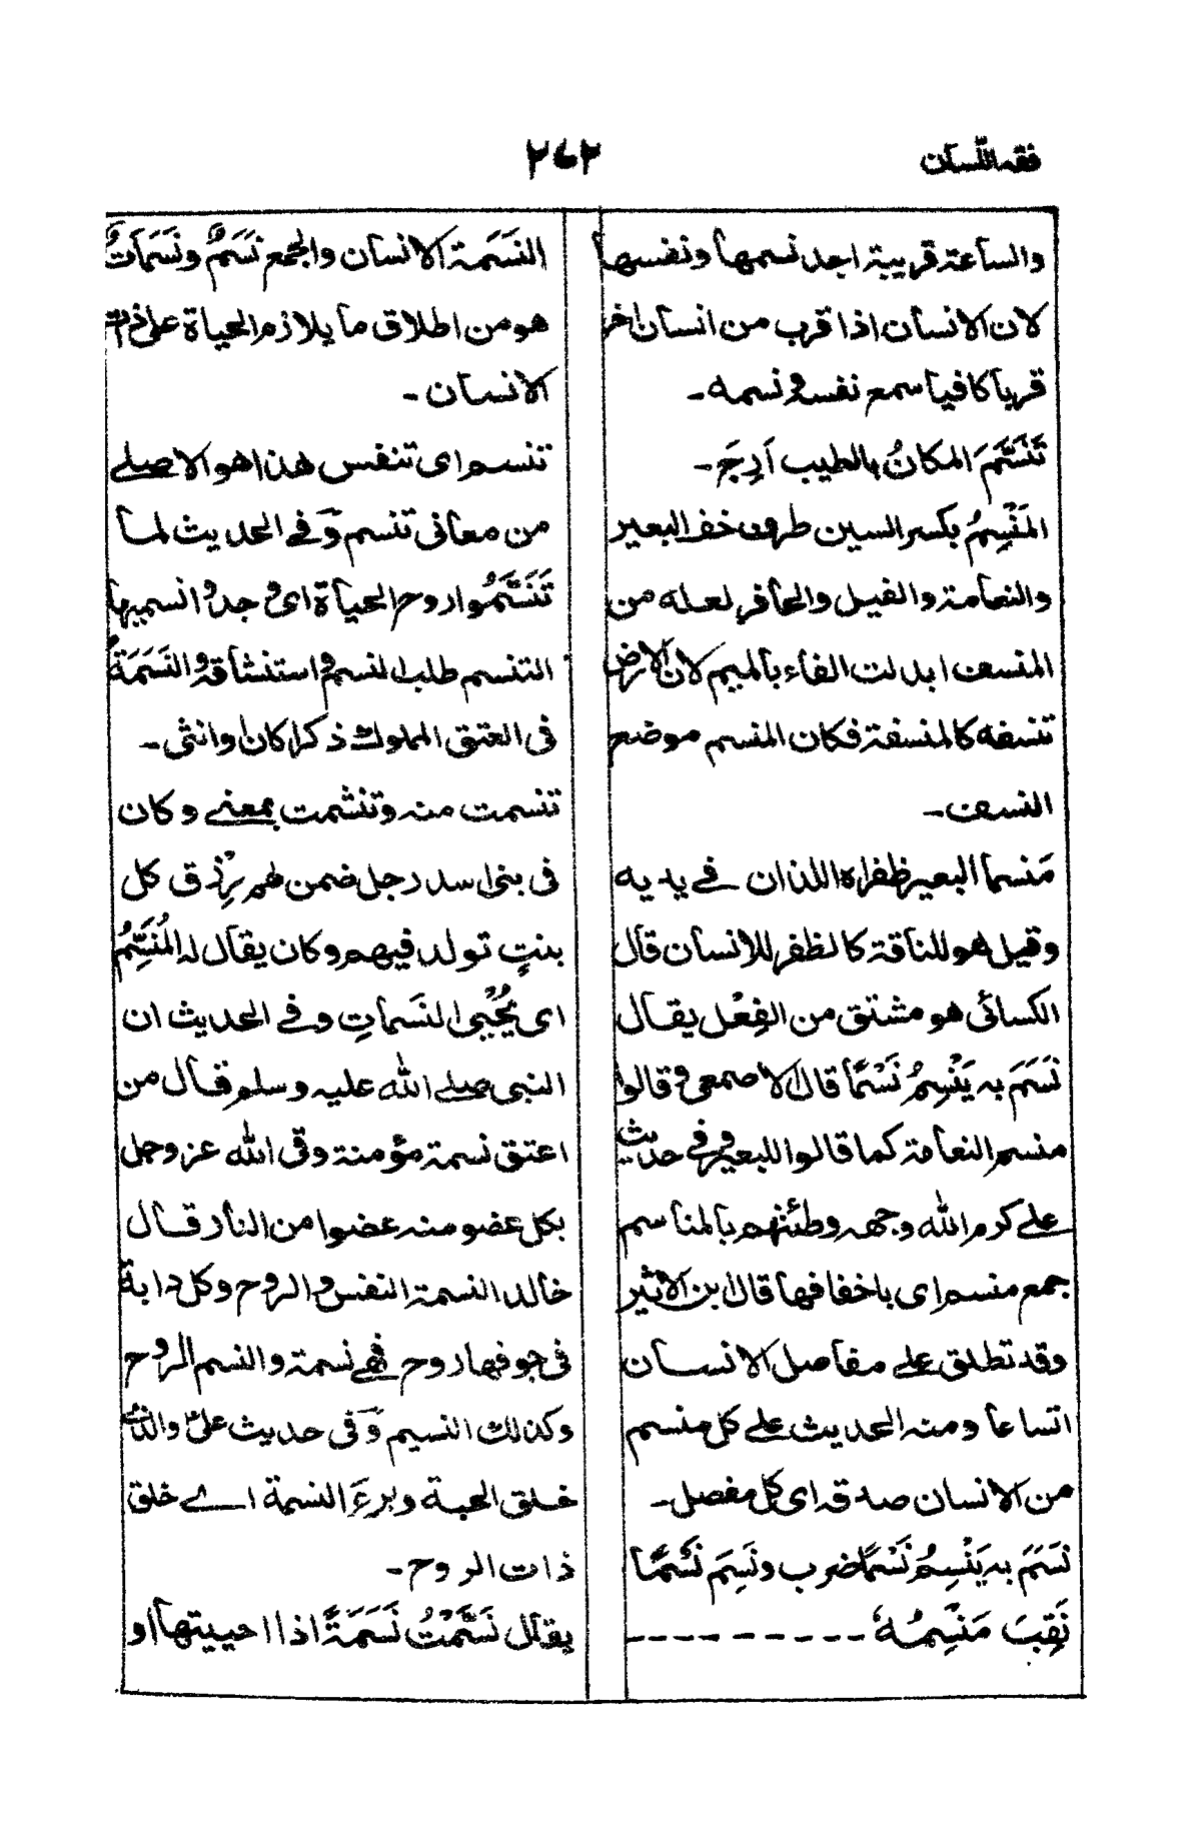 فقه اللسان
٢٦٢
والساعة قريبة اجد نسمها ونفسها
لان الانسان اذا قرب من انسان اخر
قربا كافيا سمع نفسه ونسمه ـ
تَنَسَّمَ المكانُ بالطيب اَرِجَ ـ
المَنْسِمُ بكسر السين طرف خف البعير
والنعامة والفيل والحافر لعله من
المنسف ابدلت الفاء بالميم لان الارض
تنسفه كالمنسفة فكان المنسم موضع
النسف ـ
مَنسما البعير ظفراه اللذان في يديه
وقيل هو للناقة كالظفر للانسان قال
الكسائى هو مشتق من الفِعْل يقال
نَسَمَ به يَنْسِمُ نَسْمًا قال الاصمعى وقالوا
منسم النعامة كما قالوا للبعير وفى حديث
على كرم الله وجهه وطئتهم بالمناسم
جمع منسم اى باخفافها قال ابن الاثير
وقد تطلق على مفاصل الانسان
اتساعا ومنه الحديث على كل منسم
من الانسان صدقه اى كل مفصل ـ
نَسَمَ به يَنْسِمُ نَسْمًا ضرب ونَسِمَ نَسَمًا
نَقِبَ مَنْسِمُهُ ـ ـ ـ ـ ـ ـ ـ ـ ـ
النَسَمَة الانسان والجمع نَسَمٌ ونَسَمَاتٌ
هو من اطلاق ما يلازم الحياة على ذات
الانسان ـ
تنسم اى تنفس هذا هو الاصلى
من معانى تنسم وَفى الحديث لما
تَنَسَّمُوا روح الحياة اى وجدوا نسيمها
التنسم طلب النسم واستنشاقه والنَسَمَةُ
فى العتق المملوك ذكرا كان او انثى ـ
تنسمت منه وتنشمت بمعنى وكان
فى بنى اسد رجل ضمن لهم رِزْق كل
بنتٍ تولد فيهم وكان يقال له المُنَسِّمُ
اى يُحْيِى النَسَماتِ وفى الحديث ان
النبى صلى الله عليه وسلم قال من
اعتق نسمة مؤمنة وقى الله عز وجل
بكل عضو منه عضوا من النار قال
خالد النسمة النفس والروح وكل دابة
فى جوفها روح فهى نسمة والنسم الروح
وكذلك النسيم وَفى حديث على والذى
خلق الحبة وبرءَ النسمة اى خلق
ذات الروح ـ
يقال نَسَّمْتُ نَسَمَةً اذا احييتها او